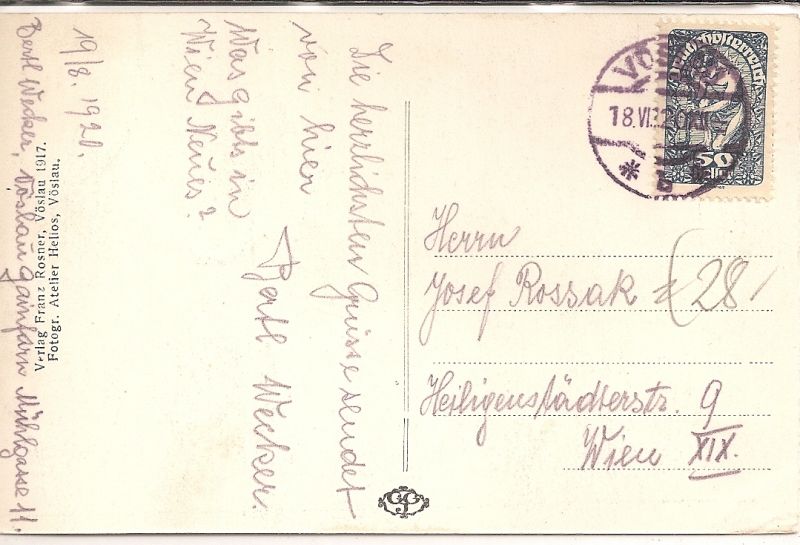 19/8. 1920.
Die herzlichsten Grüsse sendet
von hier
Bertl Wecker.
Was gibts in
Wien Neues?
Bertl Wecker, Vöslau Gainfarn Mühlgasse 11.
Verlag Franz Rosner, Vöslau 1917.
Fotogr. Atelier Helios, Vöslau.
Deutschösterreich
50
Heller
18.VI
*
Herrn
Josef Rossak (28
Heiligenstädterstr. 9
Wien XIX.